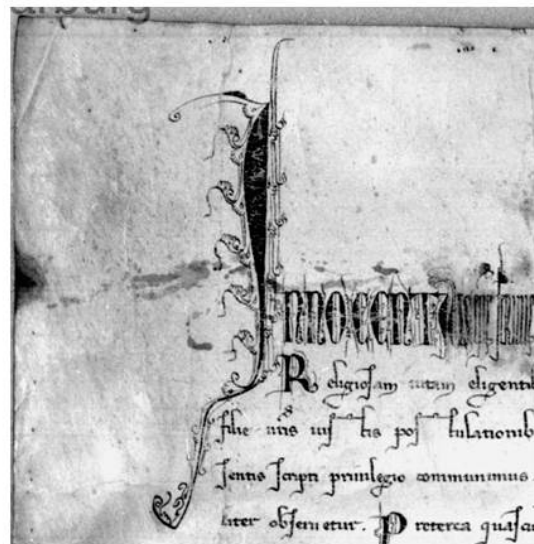 arburg
INNOCENTIUS
Religiosam uitam eligentib
filie ur̄is iust tis post tulationib
sentis scripti priuilegio communimus.
liter obseruetur. Preterea quascu